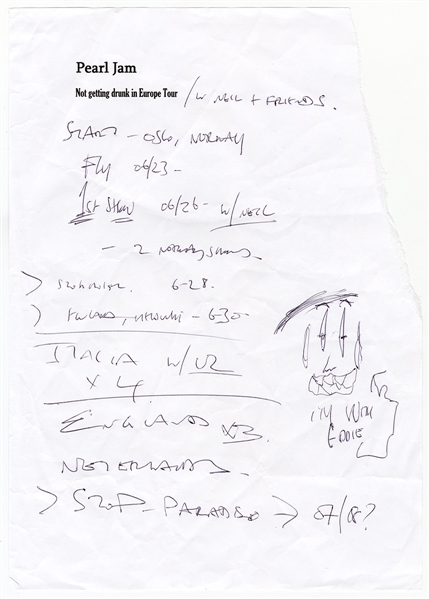 Pearl Jam
Not getting drunk in Europe Tour / w NEIL + FRIENDS.
START - OSLO, NORWAY
Fly 06/23 -
1st Show 06/26 - w/NEIL
- 2 NORWAY SHOWS
> 6-28.
> FINLAND, HELSINKI - 6-30-
ITALIA W/U2
x 4
ENGLAND x3
NETERLANDS
> STOP - PARADISO -> 07/08?
Eddie